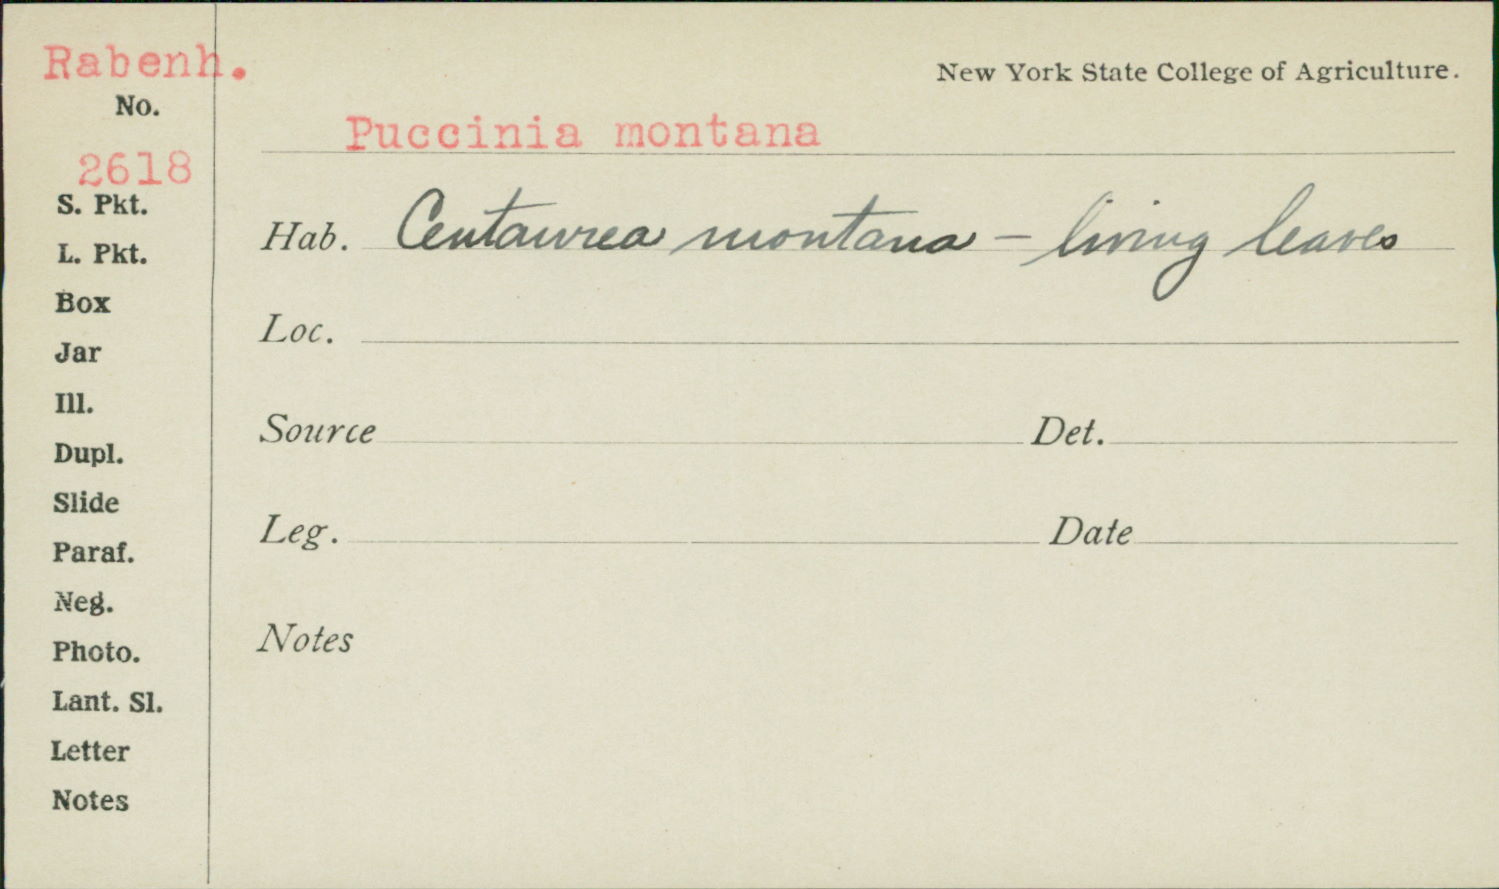 Rabenh.
New York State College of Agriculture.
No.
Puccinia montana
2618
S. Pkt.
Hab. Centaurea montana - living leaves
L. Pkt.
Box
Loc.
Jar
Ill.
Source Det.
Dupl.
Slide
Leg. Date
Paraf.
Neg.
Notes
Photo.
Lant. Sl.
Letter
Notes